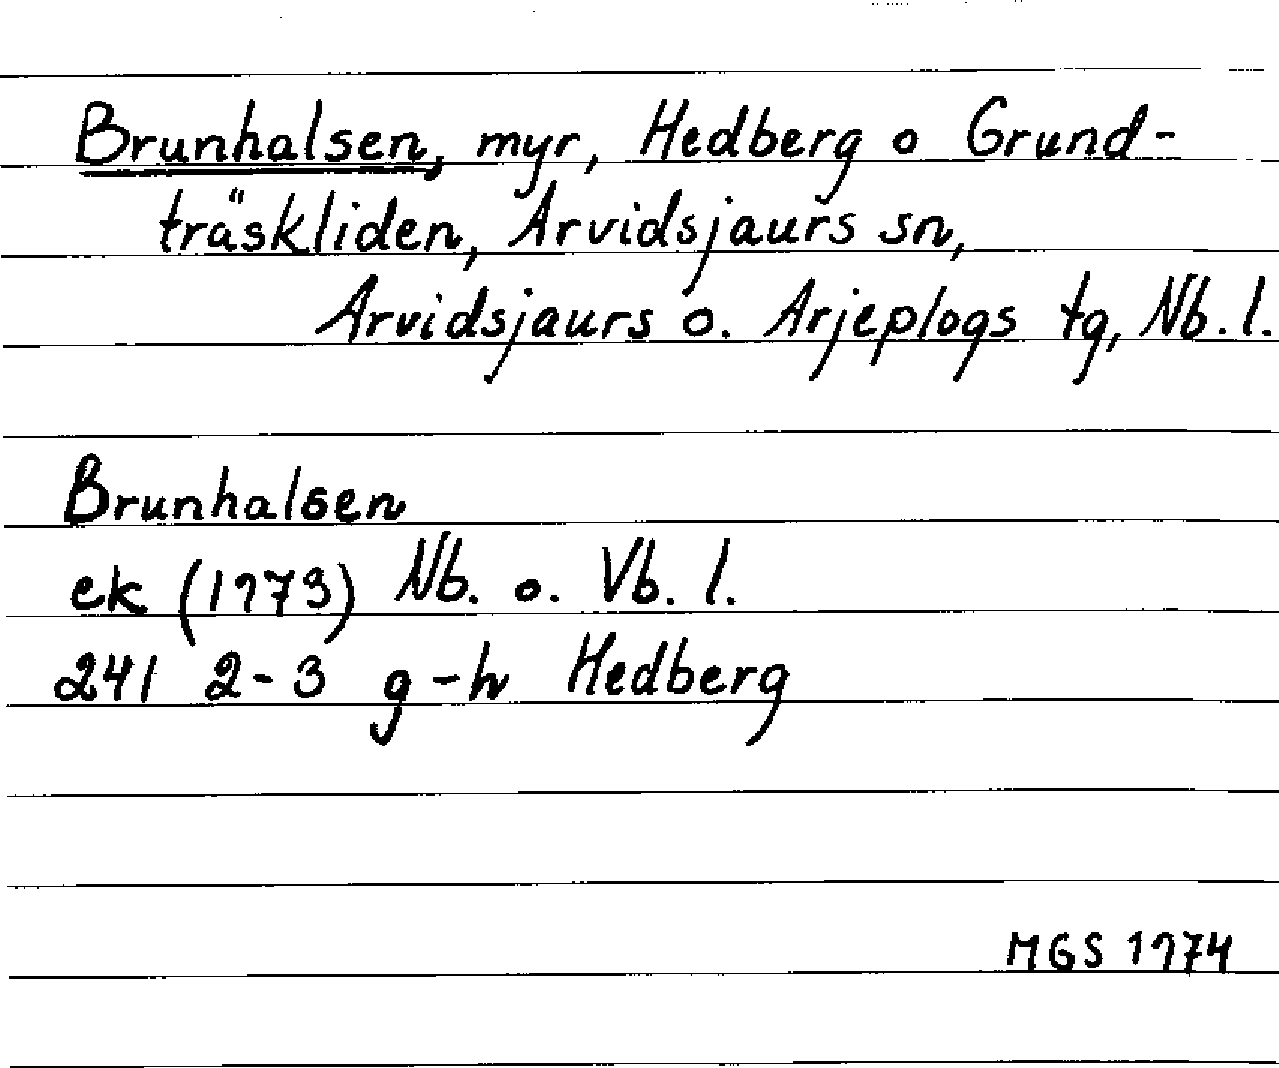 Brunhalsen, myr, Hedberg o Grund-
träskliden, Arvidsjaurs sn,
Arvidsjaurs o. Arjeplogs tg, Nb. l.
Brunhalsen
ek (1973) Nb. o. Vb. l.
241 2-3 g-h Hedberg
MGS 1974